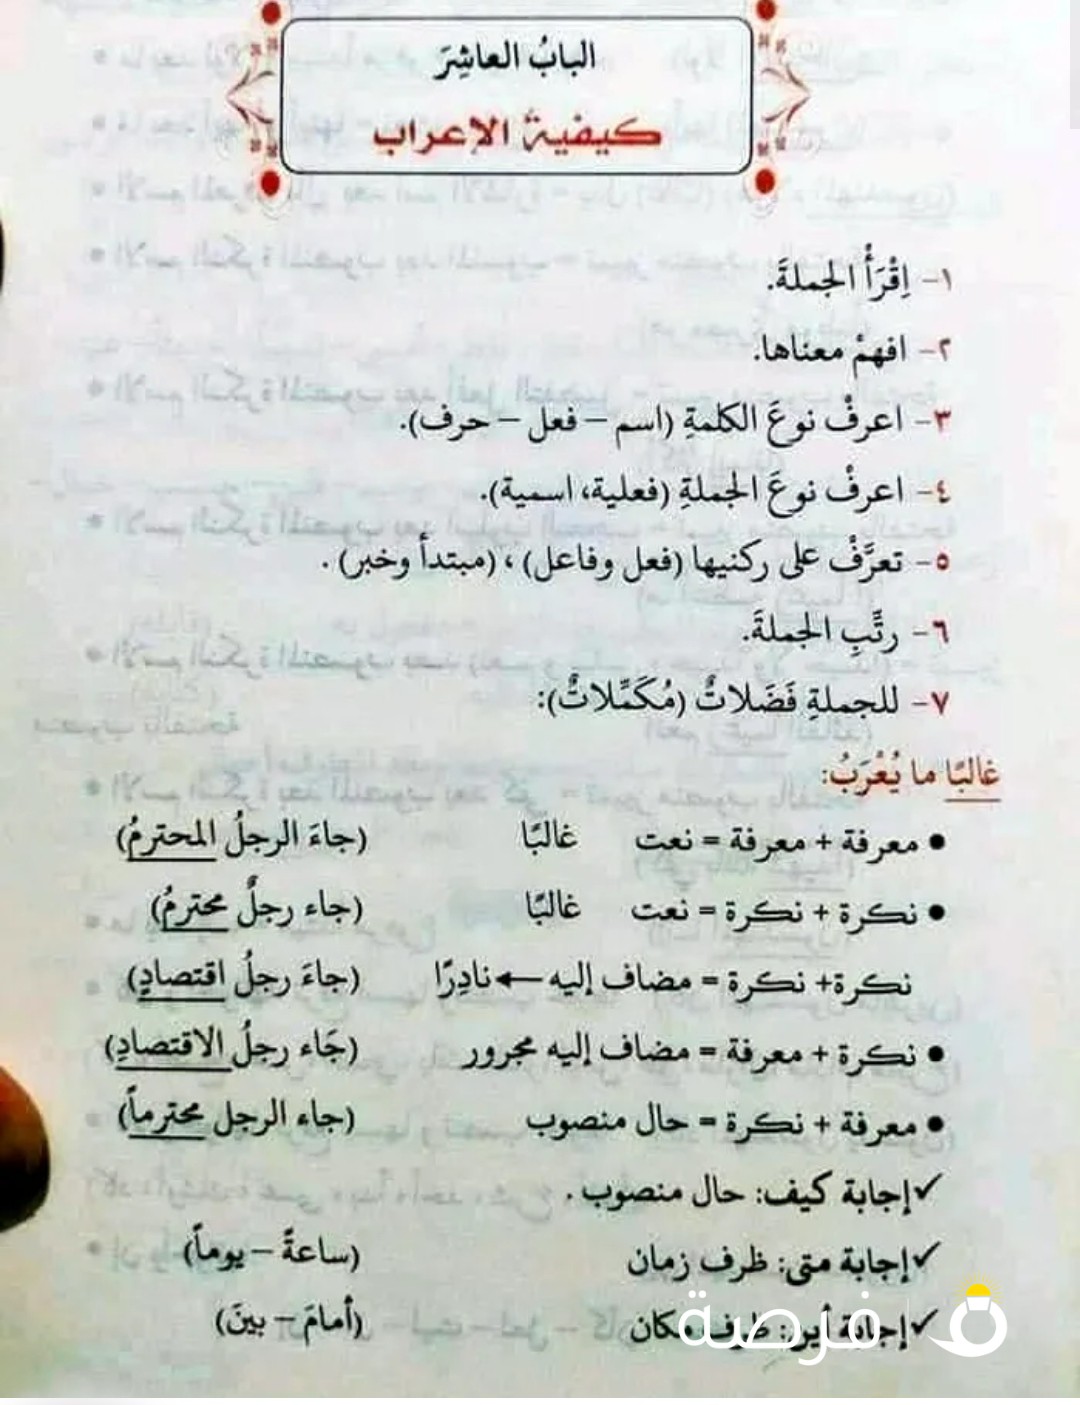 البابُ العاشِرَ
كيفية الإعراب
١- اِقْرَأْ الجملةَ.
٢- افهمْ معناها.
٣- اعرفْ نوعَ الكلمةِ (اسم – فعل – حرف).
٤- اعرفْ نوعَ الجملةِ (فعلية، اسمية).
٥- تعرَّفْ على ركنيها (فعل وفاعل)، (مبتدأ وخبر).
٦- رتِّبِ الجملةَ.
٧- للجملةِ فَضَلاتٌ (مُكَمِّلاتٌ):
غالبًا ما يُعْرَبُ:
● معرفة + معرفة = نعت غالبًا (جاءَ الرجلُ المحترمُ)
● نكرة + نكرة = نعت غالبًا (جاء رجلٌ محترمُ)
نكرة+ نكرة = مضاف إليه ← نادِرًا (جاءَ رجلُ اقتصادٍ)
● نكرة + معرفة = مضاف إليه مجرور (جَاء رجلُ الاقتصادِ)
● معرفة + نكرة = حال منصوب (جاء الرجل محترماً)
✓ إجابة كيف: حال منصوب .
✓ إجابة متى: ظرف زمان (ساعةً – يوماً)
✓ إجابة أين: ظرف مكان (أمامَ – بينَ)
فرصة